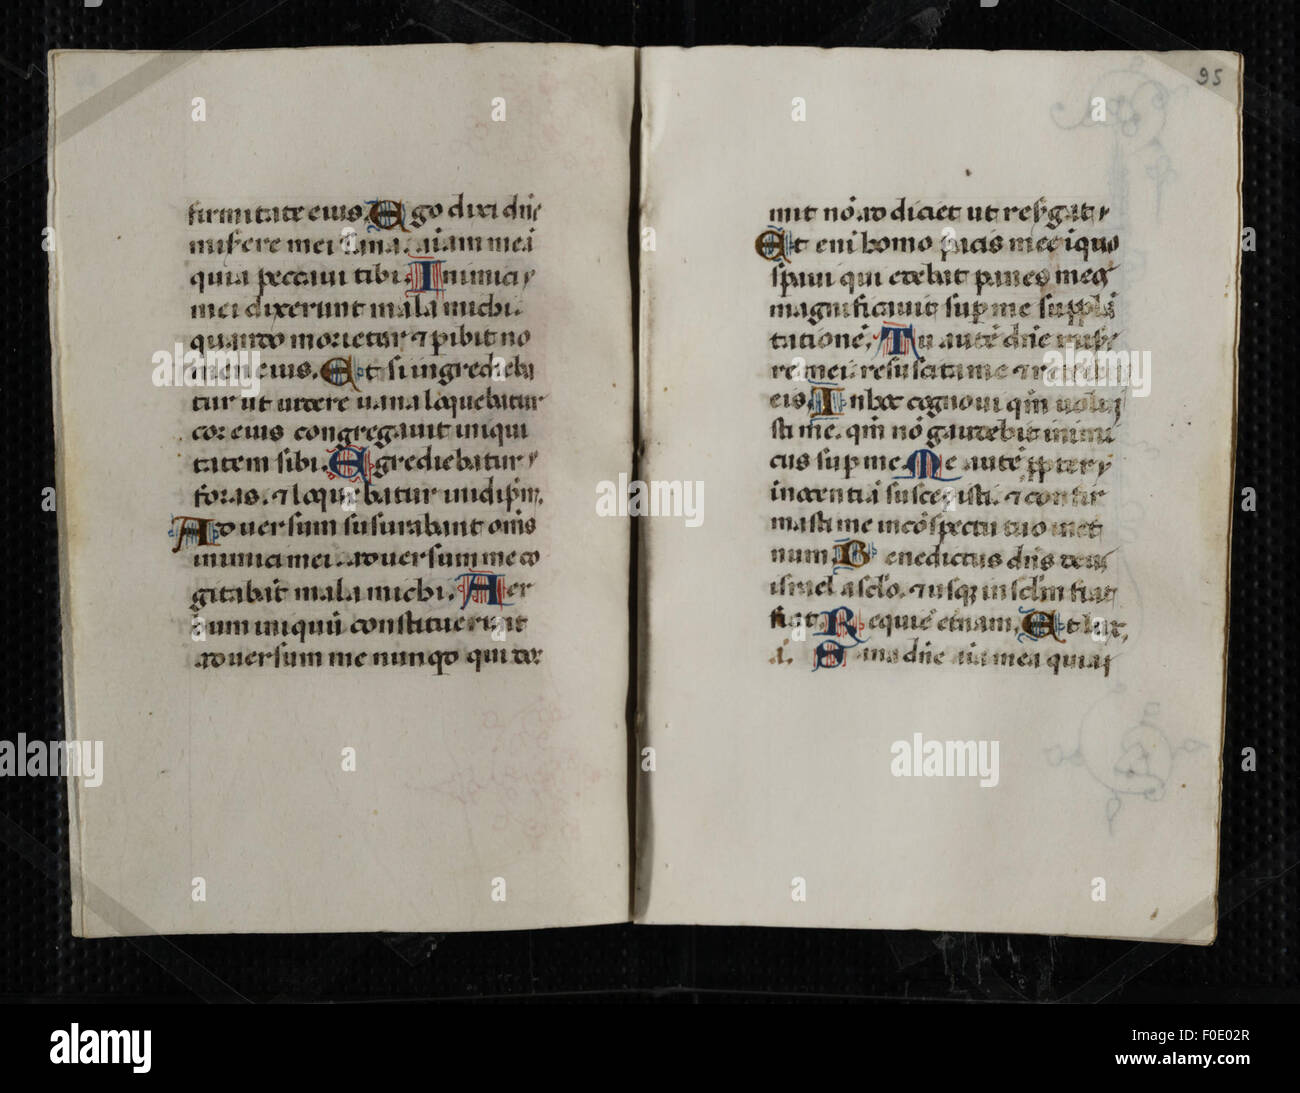 firmitate eius. Ego dixi dn̄e
miserere mei sana aīam meā
quia peccaui tibi. Inimici
mei dixerunt mala michi.
quando morietur ⁊ p̱ibit no
men eius. Et si ingredieba
tur ut uidere uana loquebatur
cor eius congregauit iniqui
tatem sibi. Egrediebatur
foras. ⁊ loquebatur in idip̄m.
Aduersum susurabant om̄s
inimici mei. aduersum me co
gitabāt mala michi. Uer
bum iniquū constituerunt
aduersum me nunqd qui dor
95
mit nō adiciet ut resurgat
Et enī homo pacis mee iquo
spaui qui edebat panes meos
magnificauit sup me supplā
tationē. Tu autē dn̄e mise
rere mei ⁊ resuscita me ⁊ retribuā
eis. In hoc cognoui qm̄ uolui
sti me. qm̄ nō gaudebit inimi
cus sup me. Me autē ꝓpter
inocentiā suscepisti. ⁊ confir
masti me in cōspectu tuo in et
num. Benedictus dn̄s deus
israel a sclo. ⁊ usq; in sclm fiat
fiat. Requiē etnam. Et lux.
a. Sana dn̄e aīa mea quia
alamy
Image ID: F0E02R
www.alamy.com